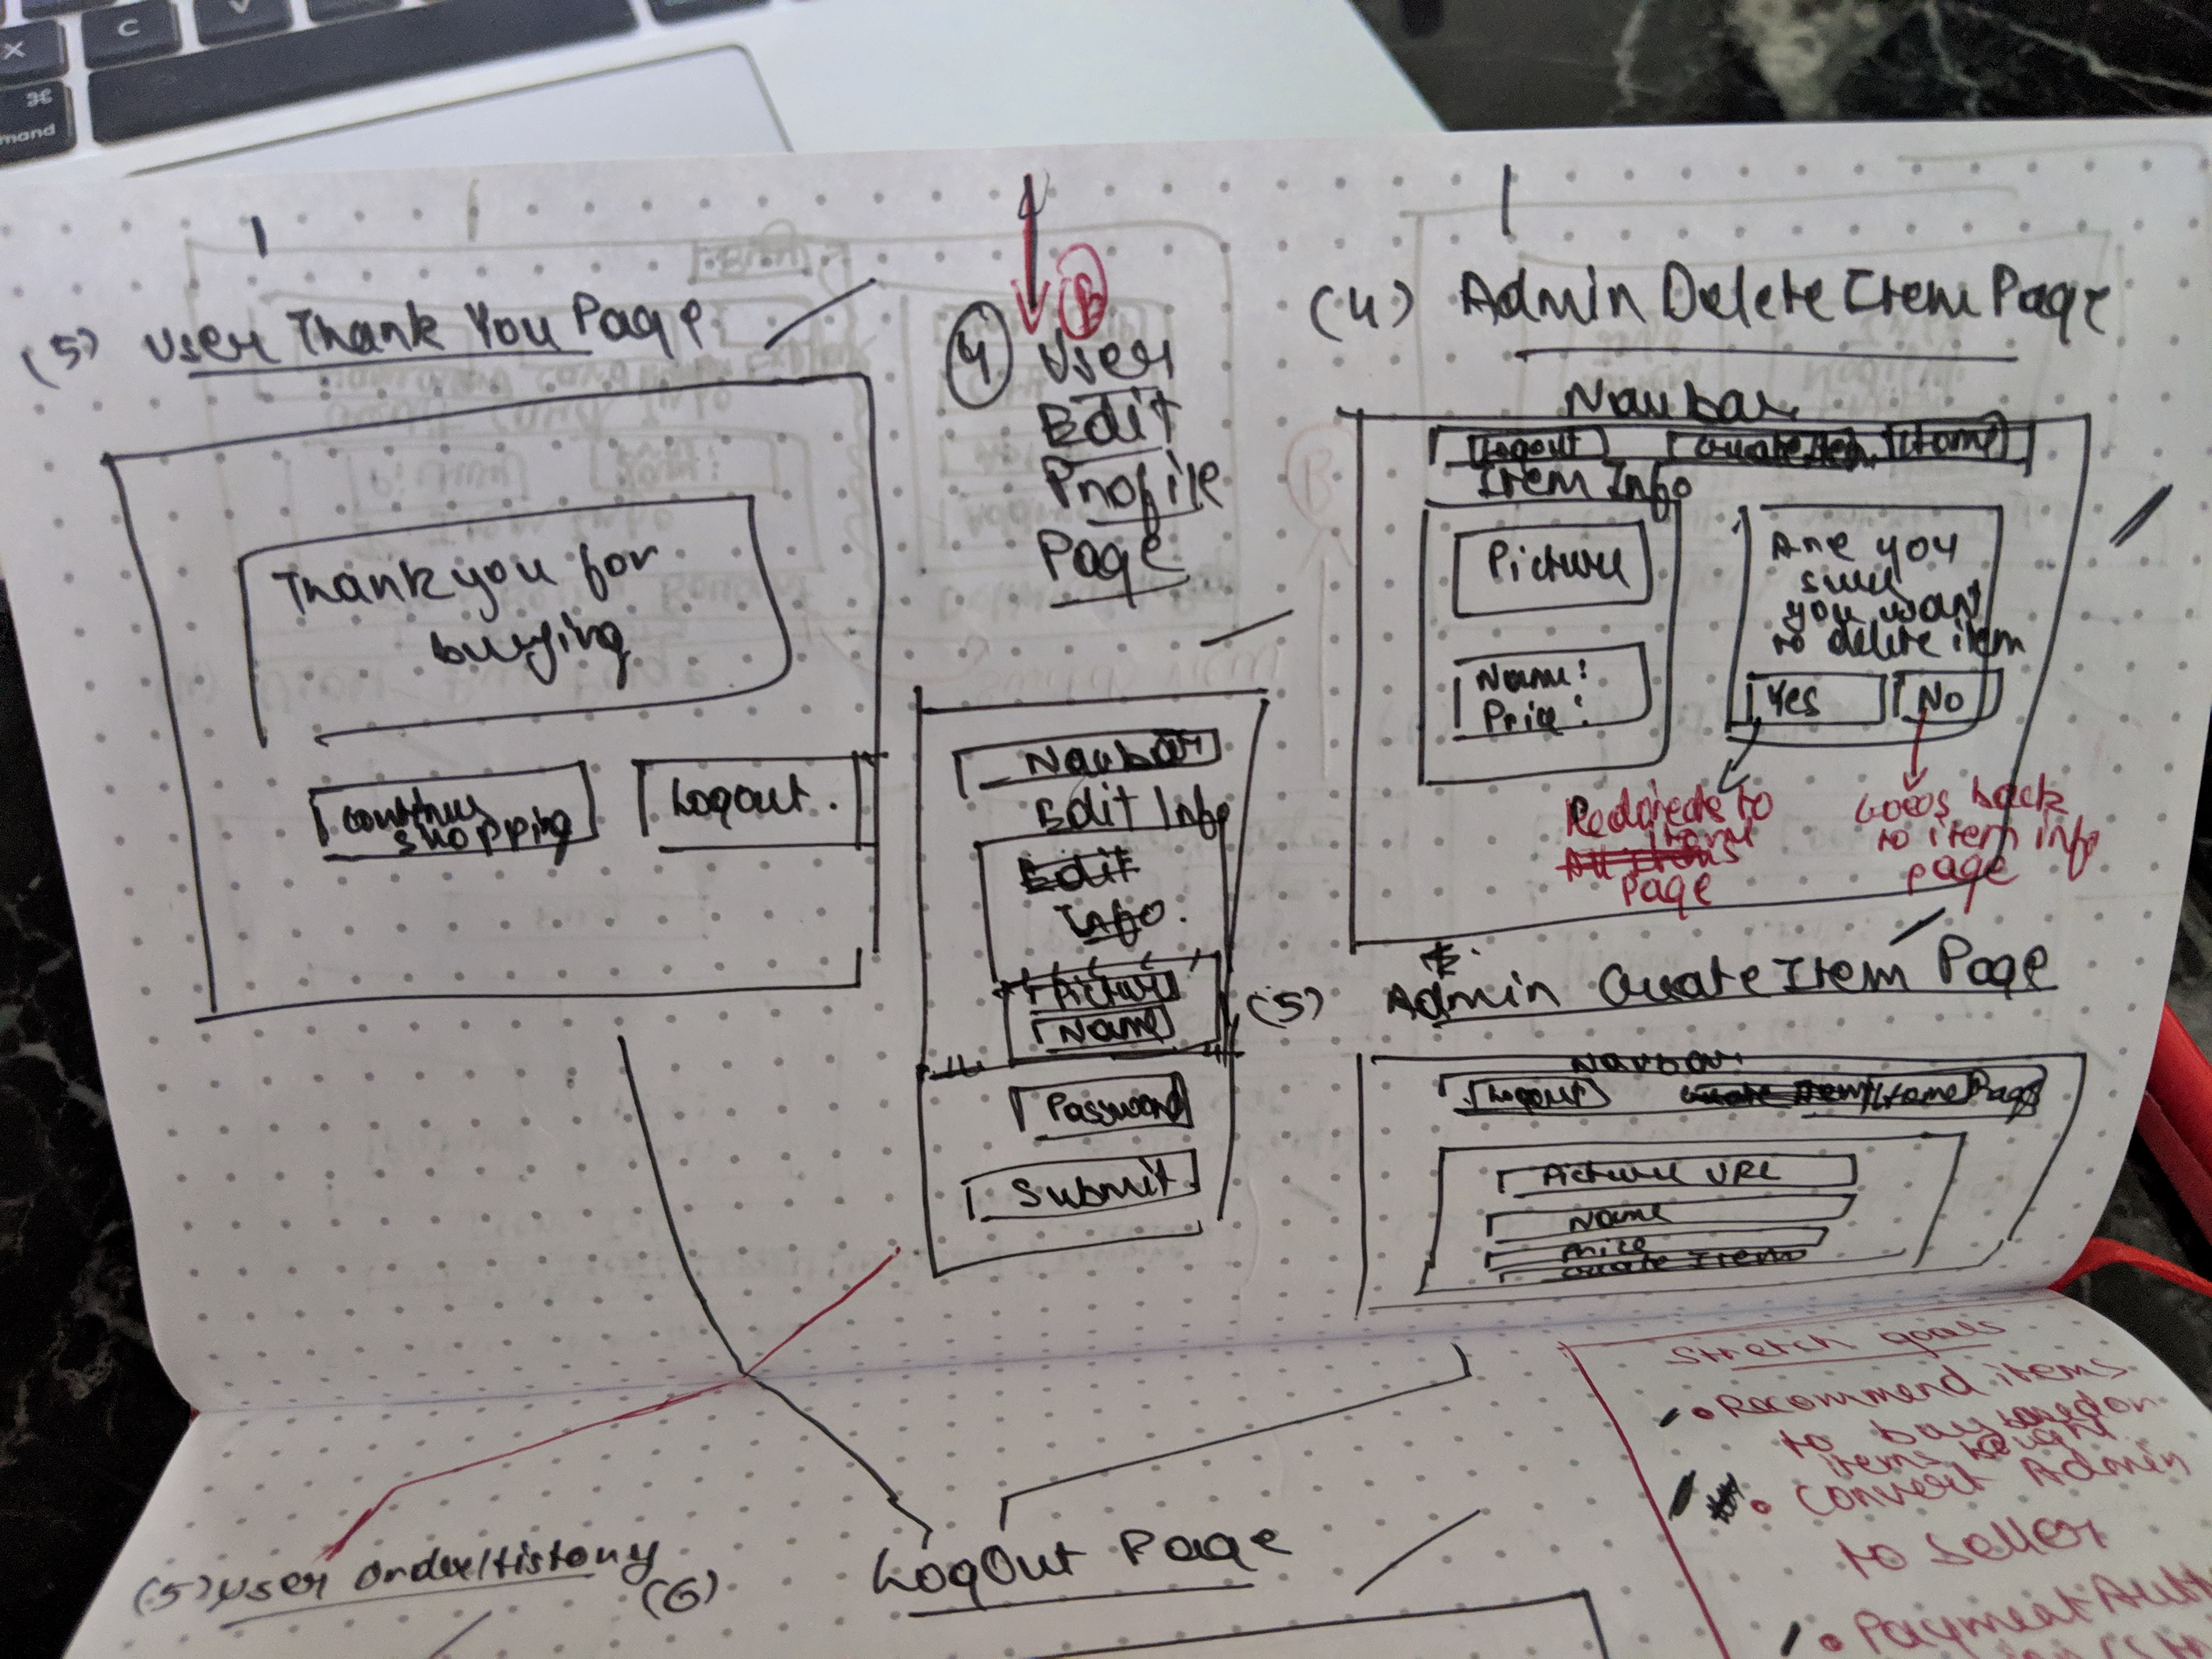 X
C
V
⌘
mand
(5) User Thank You Page
Thank you for
buying
Continue
shopping
Logout.
B
4 User
Edit
Profile
Page
Navbar
Edit Info
Edit
Info.
Picture
Name
Password
Submit
(4) Admin Delete Item Page
Navbar
Logout Create Item Home
Item Info
Picture
Name:
Price:
Are you
sure
you want
to delete item
Yes No
Redirects to
Home
All items
page
Goes back
to item info
page
(5) Admin Create Item Page
Navbar
Logout Create Item Home Page
Picture URL
Name
Price
Create Item
Stretch goals
• Recommend items
to buy based on
items bought
• Convert Admin
to Seller
• Payment
(5) User Order History
(6) LogOut Page